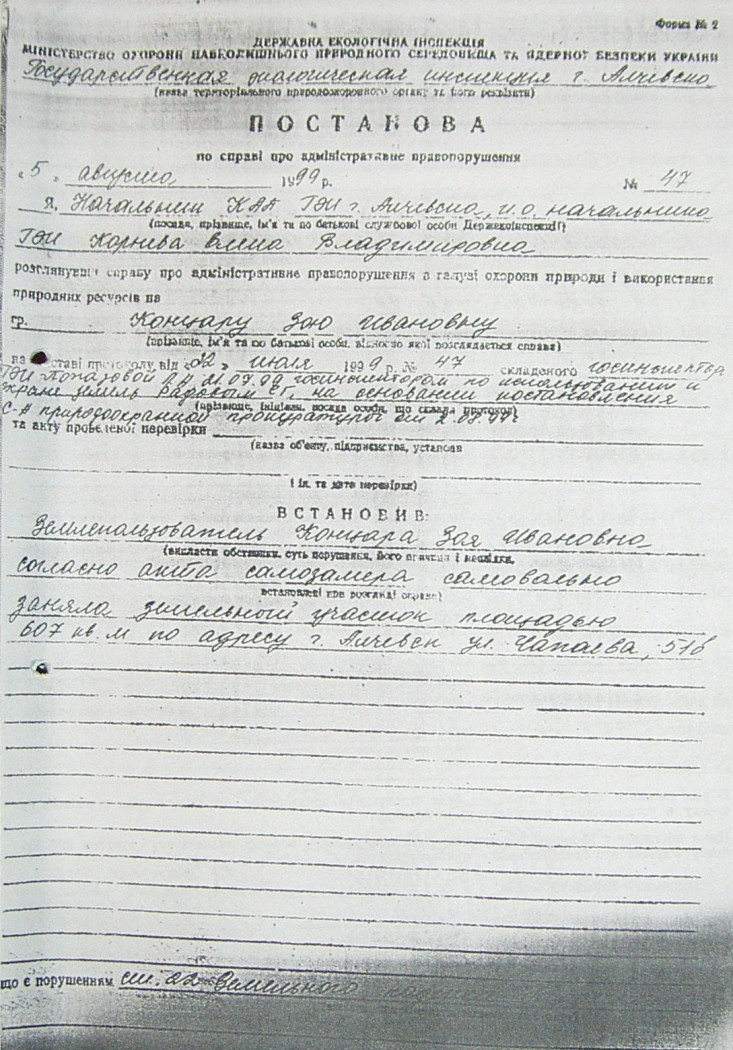 Форма № 2
ДЕРЖАВНА ЕКОЛОГІЧНА ІНСПЕКЦІЯ
МІНІСТЕРСТВО ОХОРОНИ НАВКОЛИШНЬОГО ПРИРОДНОГО СЕРЕДОВИЩА ТА ЯДЕРНОЇ БЕЗПЕКИ УКРАЇНИ
Государственная экологическая инспекция г. Алчевска
(назва територіального природоохоронного органу та його реквізити)
ПОСТАНОВА
по справі про адміністративне правопорушення
« 5 » августа 1999 р. № 47
Я, Начальник КАА ГЭИ г. Алчевска, и.о. начальника
(посада, прізвище, ім'я та по батькові службової особи Держекоінспекції)
ГЭИ Корнева Елена Владимировна
розглянувши справу про адміністративне правопорушення в галузі охорони природи і використання
природних ресурсів на
гр. Концару Зою Ивановну
(прізвище, ім'я та по батькові особи, відносно якої розглядається справа)
на ставі протоколу від « 02 » июля 1999 р. № 47 складеного госинспектор
ГЭИ 21.07.99 госинспектором по использованию и
охране земель на основании постановления
С-А природоохранной прокуратуры от 2.08.99г
(прізвище, ініціали, посада особи, що склала протокол)
та акту проведеної перевірки
(назва об'єкту, підприємства, установи
і ін. та дата перевірки)
ВСТАНОВИВ:
Землепользователь Концара Зоя Ивановна
(викласти обставини, суть порушення, його причини і наслідки,
согласно акта самозамера самовольно
встановлені при розгляді справи)
заняла земельный участок площадью
607 кв.м по адресу г. Алчевск ул. Чапаева, 51б
що є порушенням ст. 22 Земельного